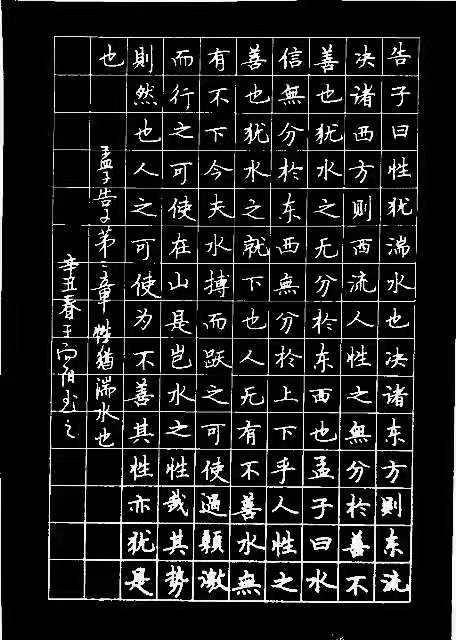 告子曰性犹湍水也决诸东方则东流
决诸西方则西流人性之無分於善不
善也犹水之无分於东西也孟子曰水
信無分於东西無分於上下乎人性之
善也犹水之就下也人无有不善水無
有不下今夫水搏而跃之可使過顙激
而行之可使在山是岂水之性哉其势
則然也人之可使为不善其性亦犹是
也
孟子告子第二章 性猶湍水也
辛丑春王向书之